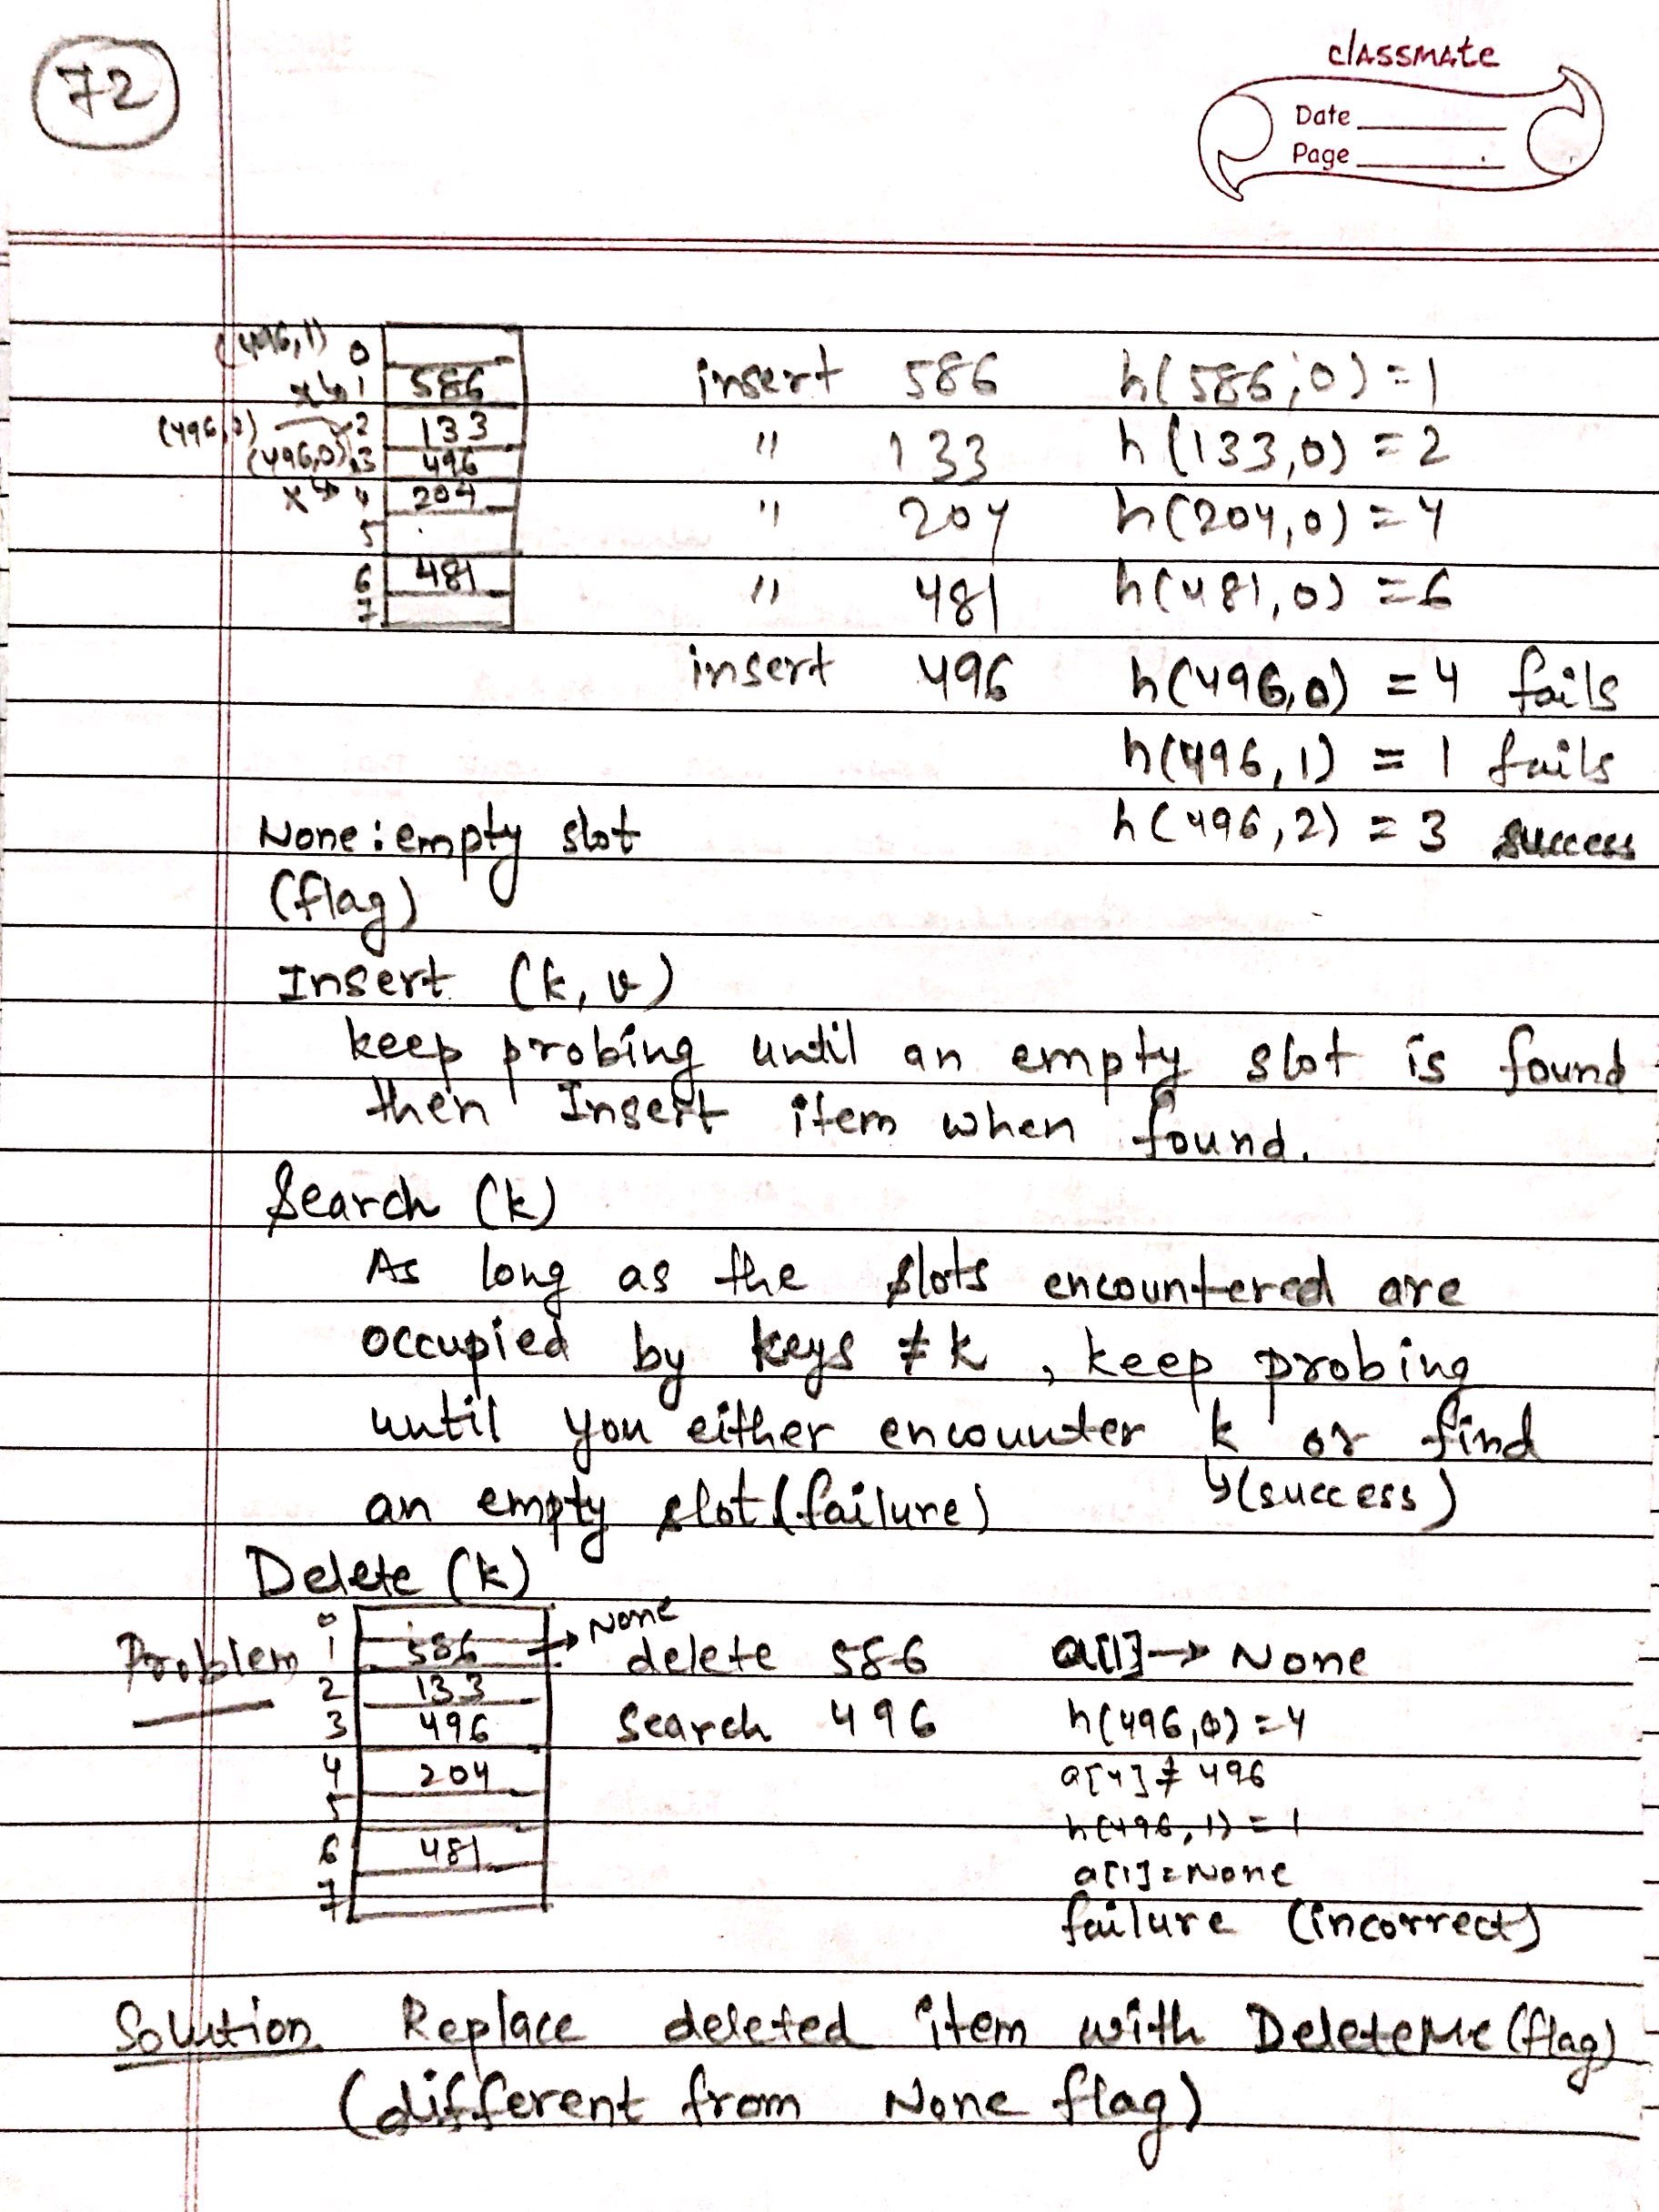 72
classmate
Date
Page
(496,1) 0
x↳ 1 586 insert 586 h(586,0) = 1
(496,2) 2 133 " 133 h(133,0) = 2
(496,0) 3 496
x↳ 4 204 " 204 h(204,0) = 4
5
6 481 " 481 h(481,0) = 6
7
insert 496 h(496,0) = 4 fails
h(496,1) = 1 fails
h(496,2) = 3 success
None : empty slot
(flag)
Insert (k, v)
keep probing until an empty slot is found
then Insert item when found.
Search (k)
As long as the slots encountered are
occupied by keys ≠ k, keep probing
until you either encounter k or find
↳(success)
an empty slot (failure)
Delete (k)
0
Problem 1 586 → None delete 586 a[1] → None
2 133
3 496 search 496 h(496,0) = 4
4 204 a[4] ≠ 496
5 h(496,1) = 1
6 481 a[1] = None
7 failure (incorrect)
Solution Replace deleted item with DeleteMe (flag)
(different from None flag)